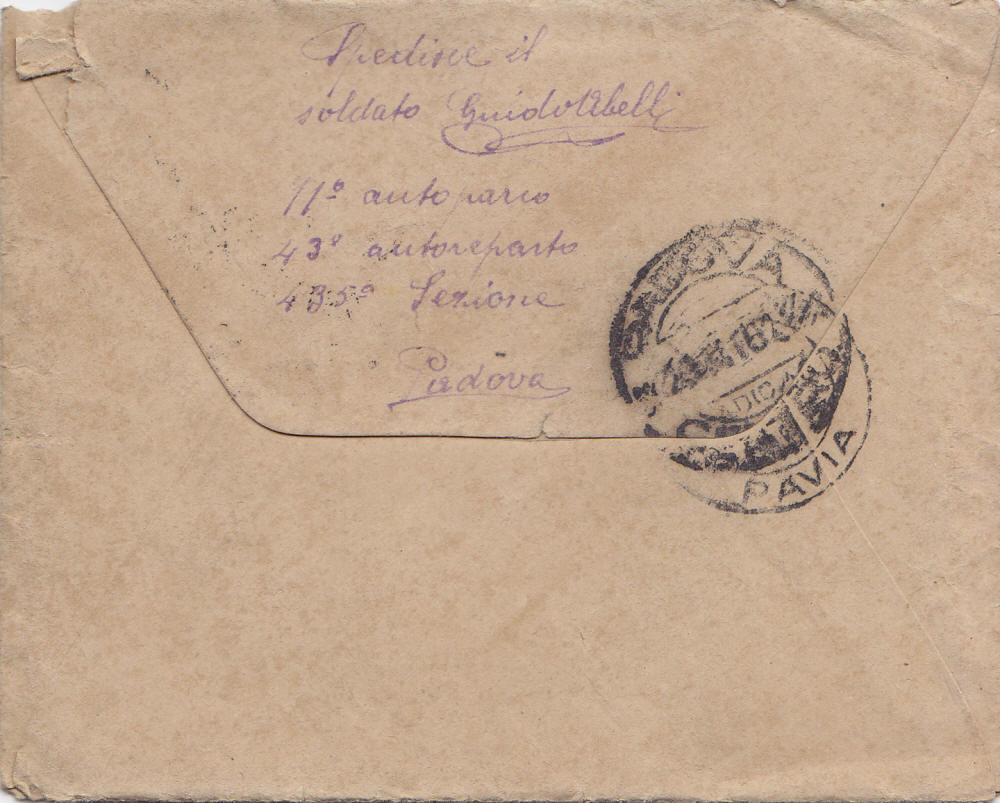 Spedisce il
soldato Guido Abelli
11º autoparco
43º autoreparto
435ª Sezione
Padova
PADOVA
PAVIA